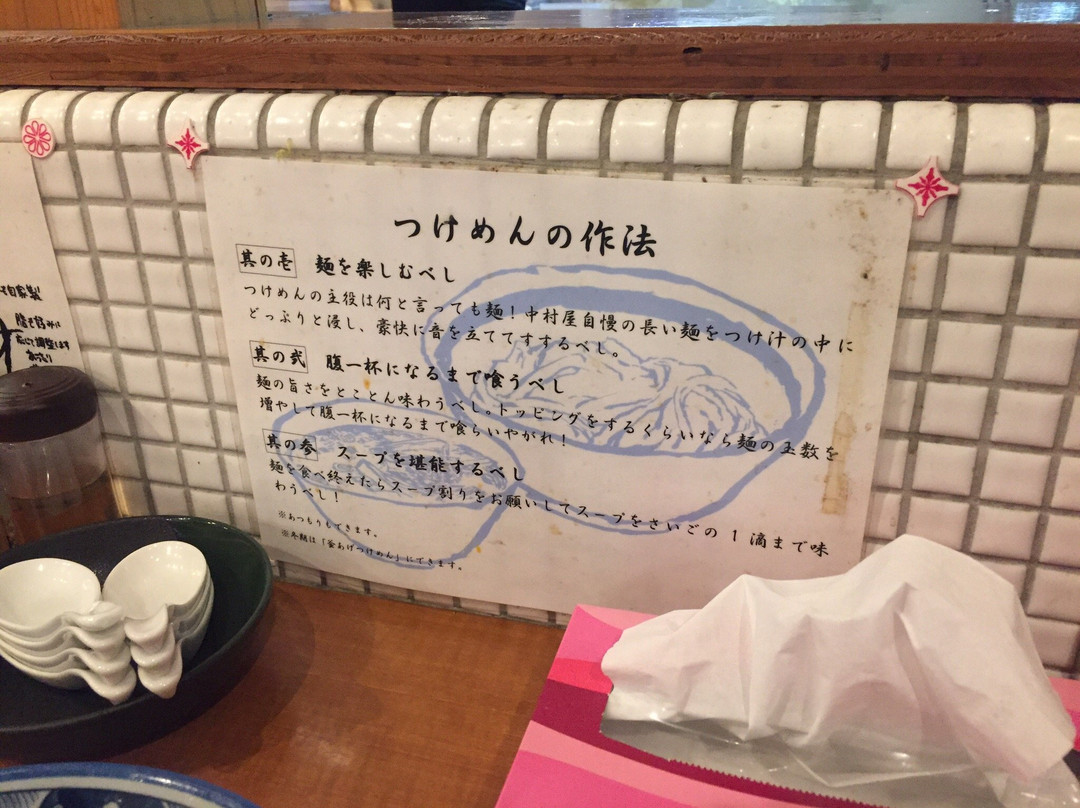 つけめんの作法
其の壱 麺を楽しむべし
つけめんの主役は何と言っても麺！中村屋自慢の長い麺をつけ汁の中に
どっぷりと浸し、豪快に音を立ててすするべし。
其の弐 腹一杯になるまで喰うべし
麺の旨さをとことん味わうべし。トッピングをするくらいなら麺の玉数を
増やして腹一杯になるまで喰らいやがれ！
其の参 スープを堪能するべし
麺を食べ終えたらスープ割りをお願いしてスープをさいごの1滴まで味
わうべし！
※あつもりもできます。
※冬期は「釜あげつけめん」にできます。
自家製